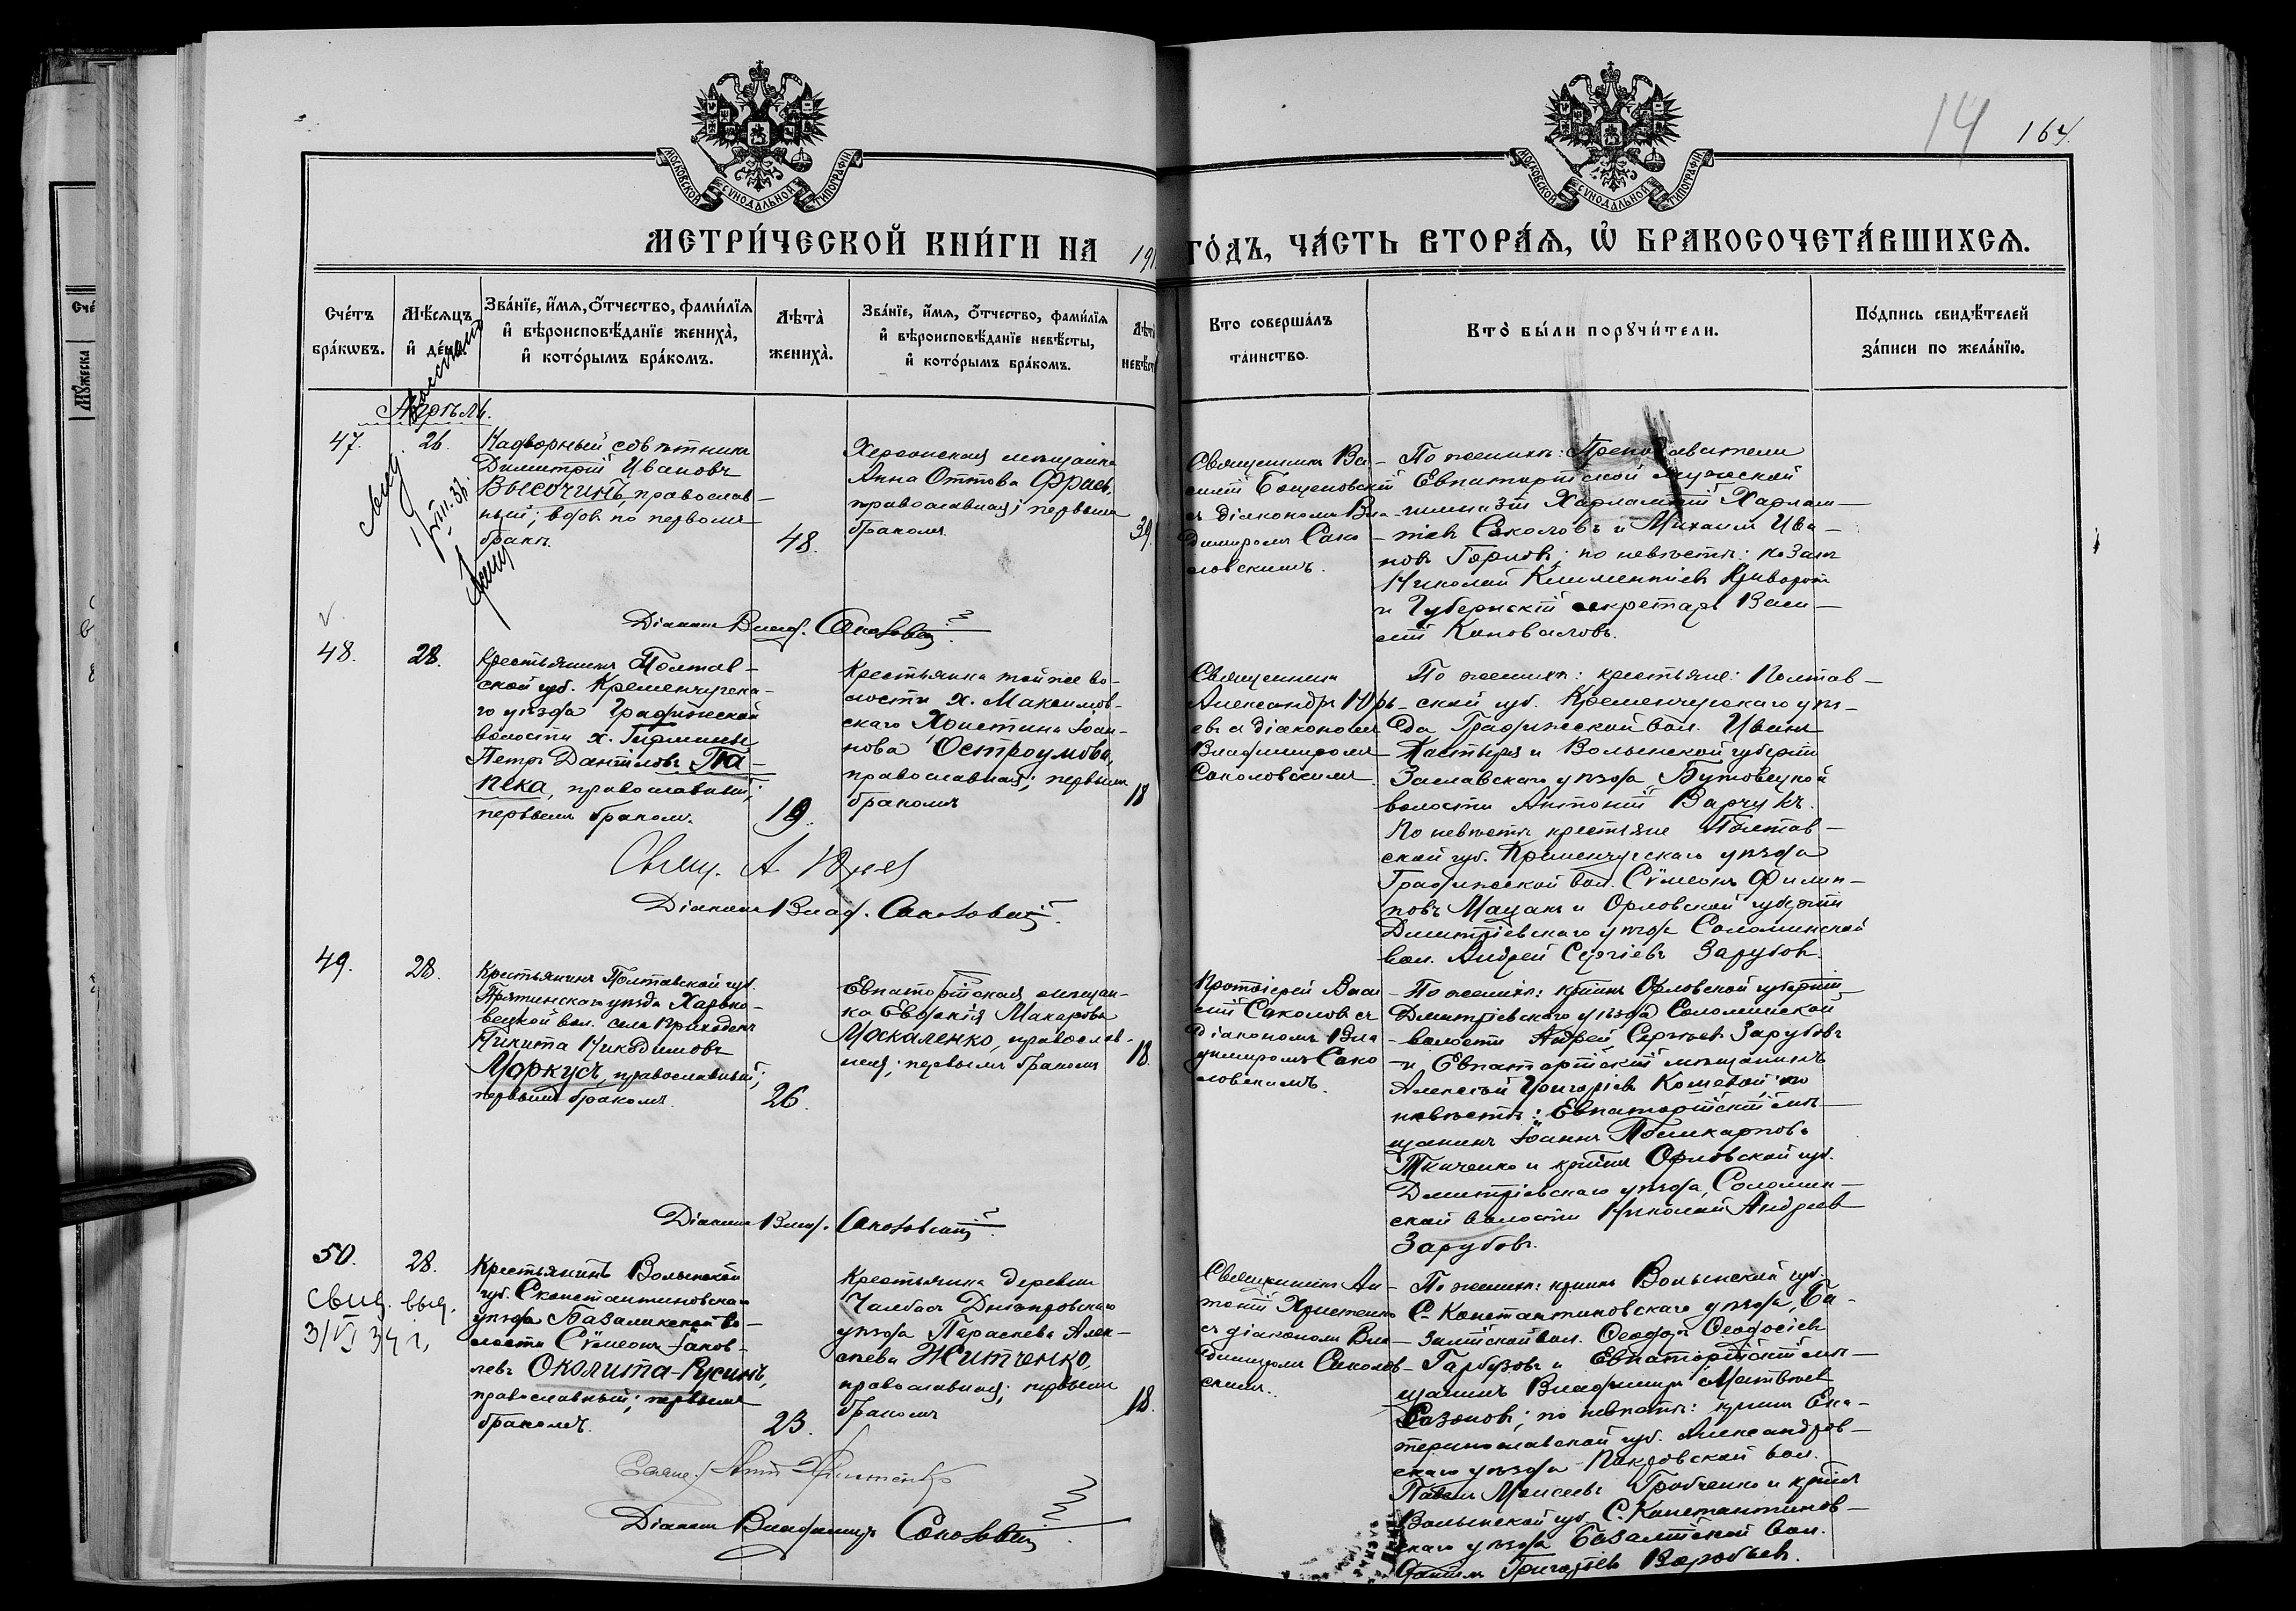 14
164.
МОСКОВСКОЙ СУНОДАЛЬНОЙ ТИПОГРАФІИ
МОСКОВСКОЙ СУНОДАЛЬНОЙ ТИПОГРАФІИ
МЕТРИ́ЧЕСКОЙ КНИ́ГИ НА 191
ГО́ДЪ, ЧА́СТЬ ВТОРА́Я, Ѽ БРАКОСОЧЕТА́ВШИХСЯ.
Сче́тъ бра́кѡвъ.
Мѣ́сяцъ и де́нь
Зва́нїе, и́мя, ѻ́тчество, фами́лїя
и вѣроисповѣ́данїе жениха̀,
и кото́рымъ бра́комъ.
Лѣта̀ жениха̀.
Зва́нїе, и́мя, ѻ́тчество, фами́лїя
и вѣроисповѣ́данїе невѣ́сты,
и кото́рымъ бра́комъ.
Лѣта̀
невѣс
Кто соверша́лъ
та́инство.
Кто̀ бы́ли порꙋчи́тели.
По́дпись свидѣ́телей
за́писи по жела́нїю.
Апрѣль.
47.
26.
Надворный совѣтникъ
Димитрій Ивановъ
Высочинъ, православ-
ный; вдовъ по первомъ
бракѣ.
48.
Херсонская мѣщанка
Анна Оттова Фрась,
православная; первымъ
бракомъ.
39.
Священникъ Ва-
силій Бощеновскій
съ діакономъ Вла-
димиромъ Соко-
ловскимъ.
По женихѣ: Преподаватели
Евпаторійской мужской
гимназіи Харлампій Харлам-
піевъ Соколовъ и Михаилъ Ива-
новъ Горловъ; по невѣстѣ: козакъ
Николай Климентіевъ
и Губернскій секретарь Васи-
лій Коноваловъ.
Діаконъ Влад. Соколовскій
48.
28.
Крестьянинъ Полтав-
ской губ. Кременчугска-
го уѣзда Градижской
волости х.
Петръ Даніиловъ Па-
пека, православный;
первымъ бракомъ.
19.
Крестьянка той же во-
лости х. Максимов-
скаго Христина Іоан-
нова Остроумова,
православная; первымъ
бракомъ
18
Священникъ
Александръ Юрь-
евъ съ діакономъ
Владимиромъ
Соколовскимъ
По женихѣ: крестьяне: Полтав-
ской губ. Кременчугскаго уѣз-
да Градижской вол. Иванъ
и Волынской губерніи
Заславскаго уѣзда Бутовецкой
волости Антоній Варчукъ.
По невѣстѣ крестьяне Полтав-
ской губ. Кременчугскаго уѣзда
Градижской вол. Сѵмеонъ Филип-
повъ Мацакъ и Орловской губерніи
Дмитріевскаго уѣзда Соломинской
вол. Андрей Сергіевъ Зарубовъ.
Свящ. А. Юрьев
Діаконъ Влад. Соколовскій.
49.
28.
Крестьянинъ Полтавской губ.
Пирятинскаго уѣзда Харько-
вецкой вол. села Приходекъ
Никита Никодимовъ
Моркусъ, православный;
первымъ бракомъ.
26.
Евпаторійская мѣщан-
ка Евдокія Макарова
Москаленко, православ-
ная; первымъ бракомъ
18.
Протоіерей Васи-
лій Соколовъ съ
діакономъ Вла-
димиромъ Соко-
ловскимъ.
По женихѣ: крʼнинъ Орловской губерніи
Дмитріевскаго уѣзда Соломинской
волости Андрей Сергѣевъ Зарубовъ
и Евпаторійскій мѣщанинъ
Алексѣй Григоріевъ Кошевой; по
невѣстѣ: Евпаторійскій мѣ-
щанинъ Іоаннъ Поликарповъ
Ткаченко и крʼнинъ Орловской губ.
Дмитріевскаго уѣзда, Соломин-
ской волости Николай Андреев
Зарубовъ.
Діаконъ Влад. Соколовскій.
50.
28.
свид. выд.
3/VI 34 г.
Крестьянинъ Волынской
губ. Сконстантиновскаго
уѣзда Базалійской во-
лости Сѵмеонъ Іаков-
левъ Околита-Русинъ,
православный; первымъ
бракомъ.
23.
Крестьянка деревни
Чалбасъ Днѣпровскаго
уѣзда Параскева Алек-
сѣева Житченко,
православная; первымъ
бракомъ
18.
Священникъ Ан-
тоній Христенко
съ діакономъ Вла-
димиромъ Соколов-
скимъ.
По женихѣ: крʼнинъ Волынской губ.
С.-Константиновскаго уѣзда, Ба-
залійской вол. Ѳеодоръ Ѳеодосіевъ
Гарбузовъ и Евпаторійскій мѣ-
щанинъ Владимиръ Матвѣев
Сазоновъ; по невѣстѣ: крʼнинъ Ека-
теринославской губ. Александров-
скаго уѣзда Покровской вол.
Павелъ Моисеевъ Гробченко и крʼнинъ
Волынской губ. С. Константинов-
скаго уѣзда Базалійской вол.
Григоріевъ Воробьевъ.
Свящ. Ант. Христенко
Діаконъ Владимиръ Соколовскій